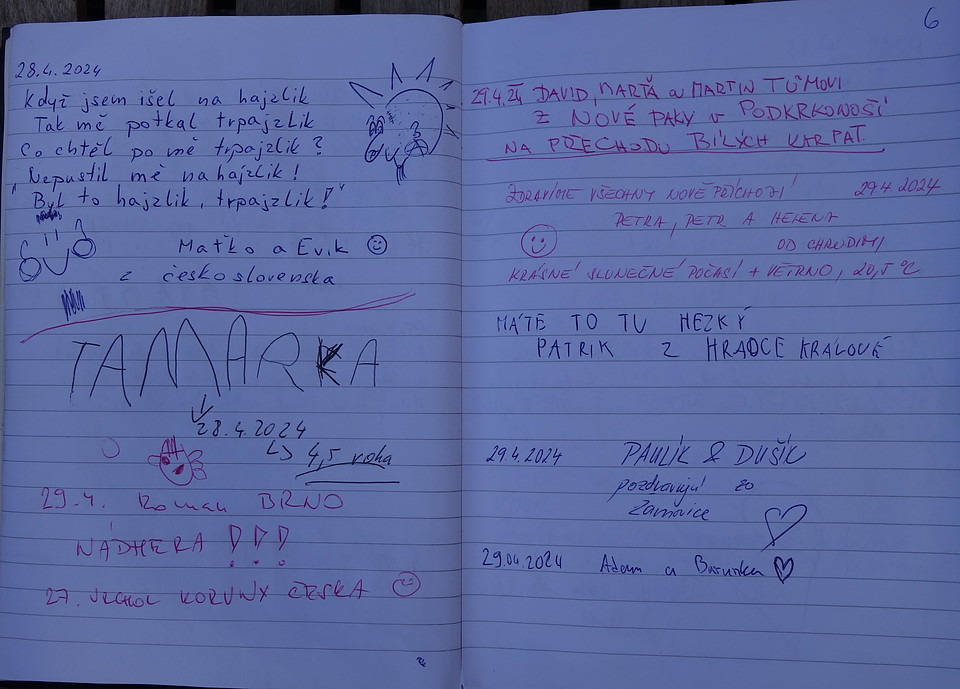 28.4.2024
Když jsem išel na hajzlik
Tak mě potkal trpajzlik
Co chtěl po mě trpajzlik?
Nepustil mě na hajzlik!
Byl to hajzlik, trpajzlik!"
Maťko a Evik
z česko slovenska
TAMARKA
28.4.2024
4,5 roka
29.4. Roman BRNO
NÁDHERA !!!
27. VRCHOL KORUNY ČESKA
6
29.4.24 DAVID, MARŤA a MARTIN TŮMOVI
Z NOVÉ PAKY V PODKRKONOŠÍ
NA PŘECHODU BÍLÝCH KARPAT
ZDRAVÍME VŠECHNY NOVĚ PŘÍCHOZÍ 29.4 2024
PETRA, PETR A HELENA
OD CHRUDIMI
KRÁSNÉ SLUNEČNÉ POČASÍ + VĚTRNO, 20,5 °C
MÁTE TO TU HEZKÝ
PATRIK Z HRADCE KRÁLOVÉ
29.4.2024 PAULÍK & DUŠÍK
pozdravujú zo
29.04.2024 Adam a Barunka